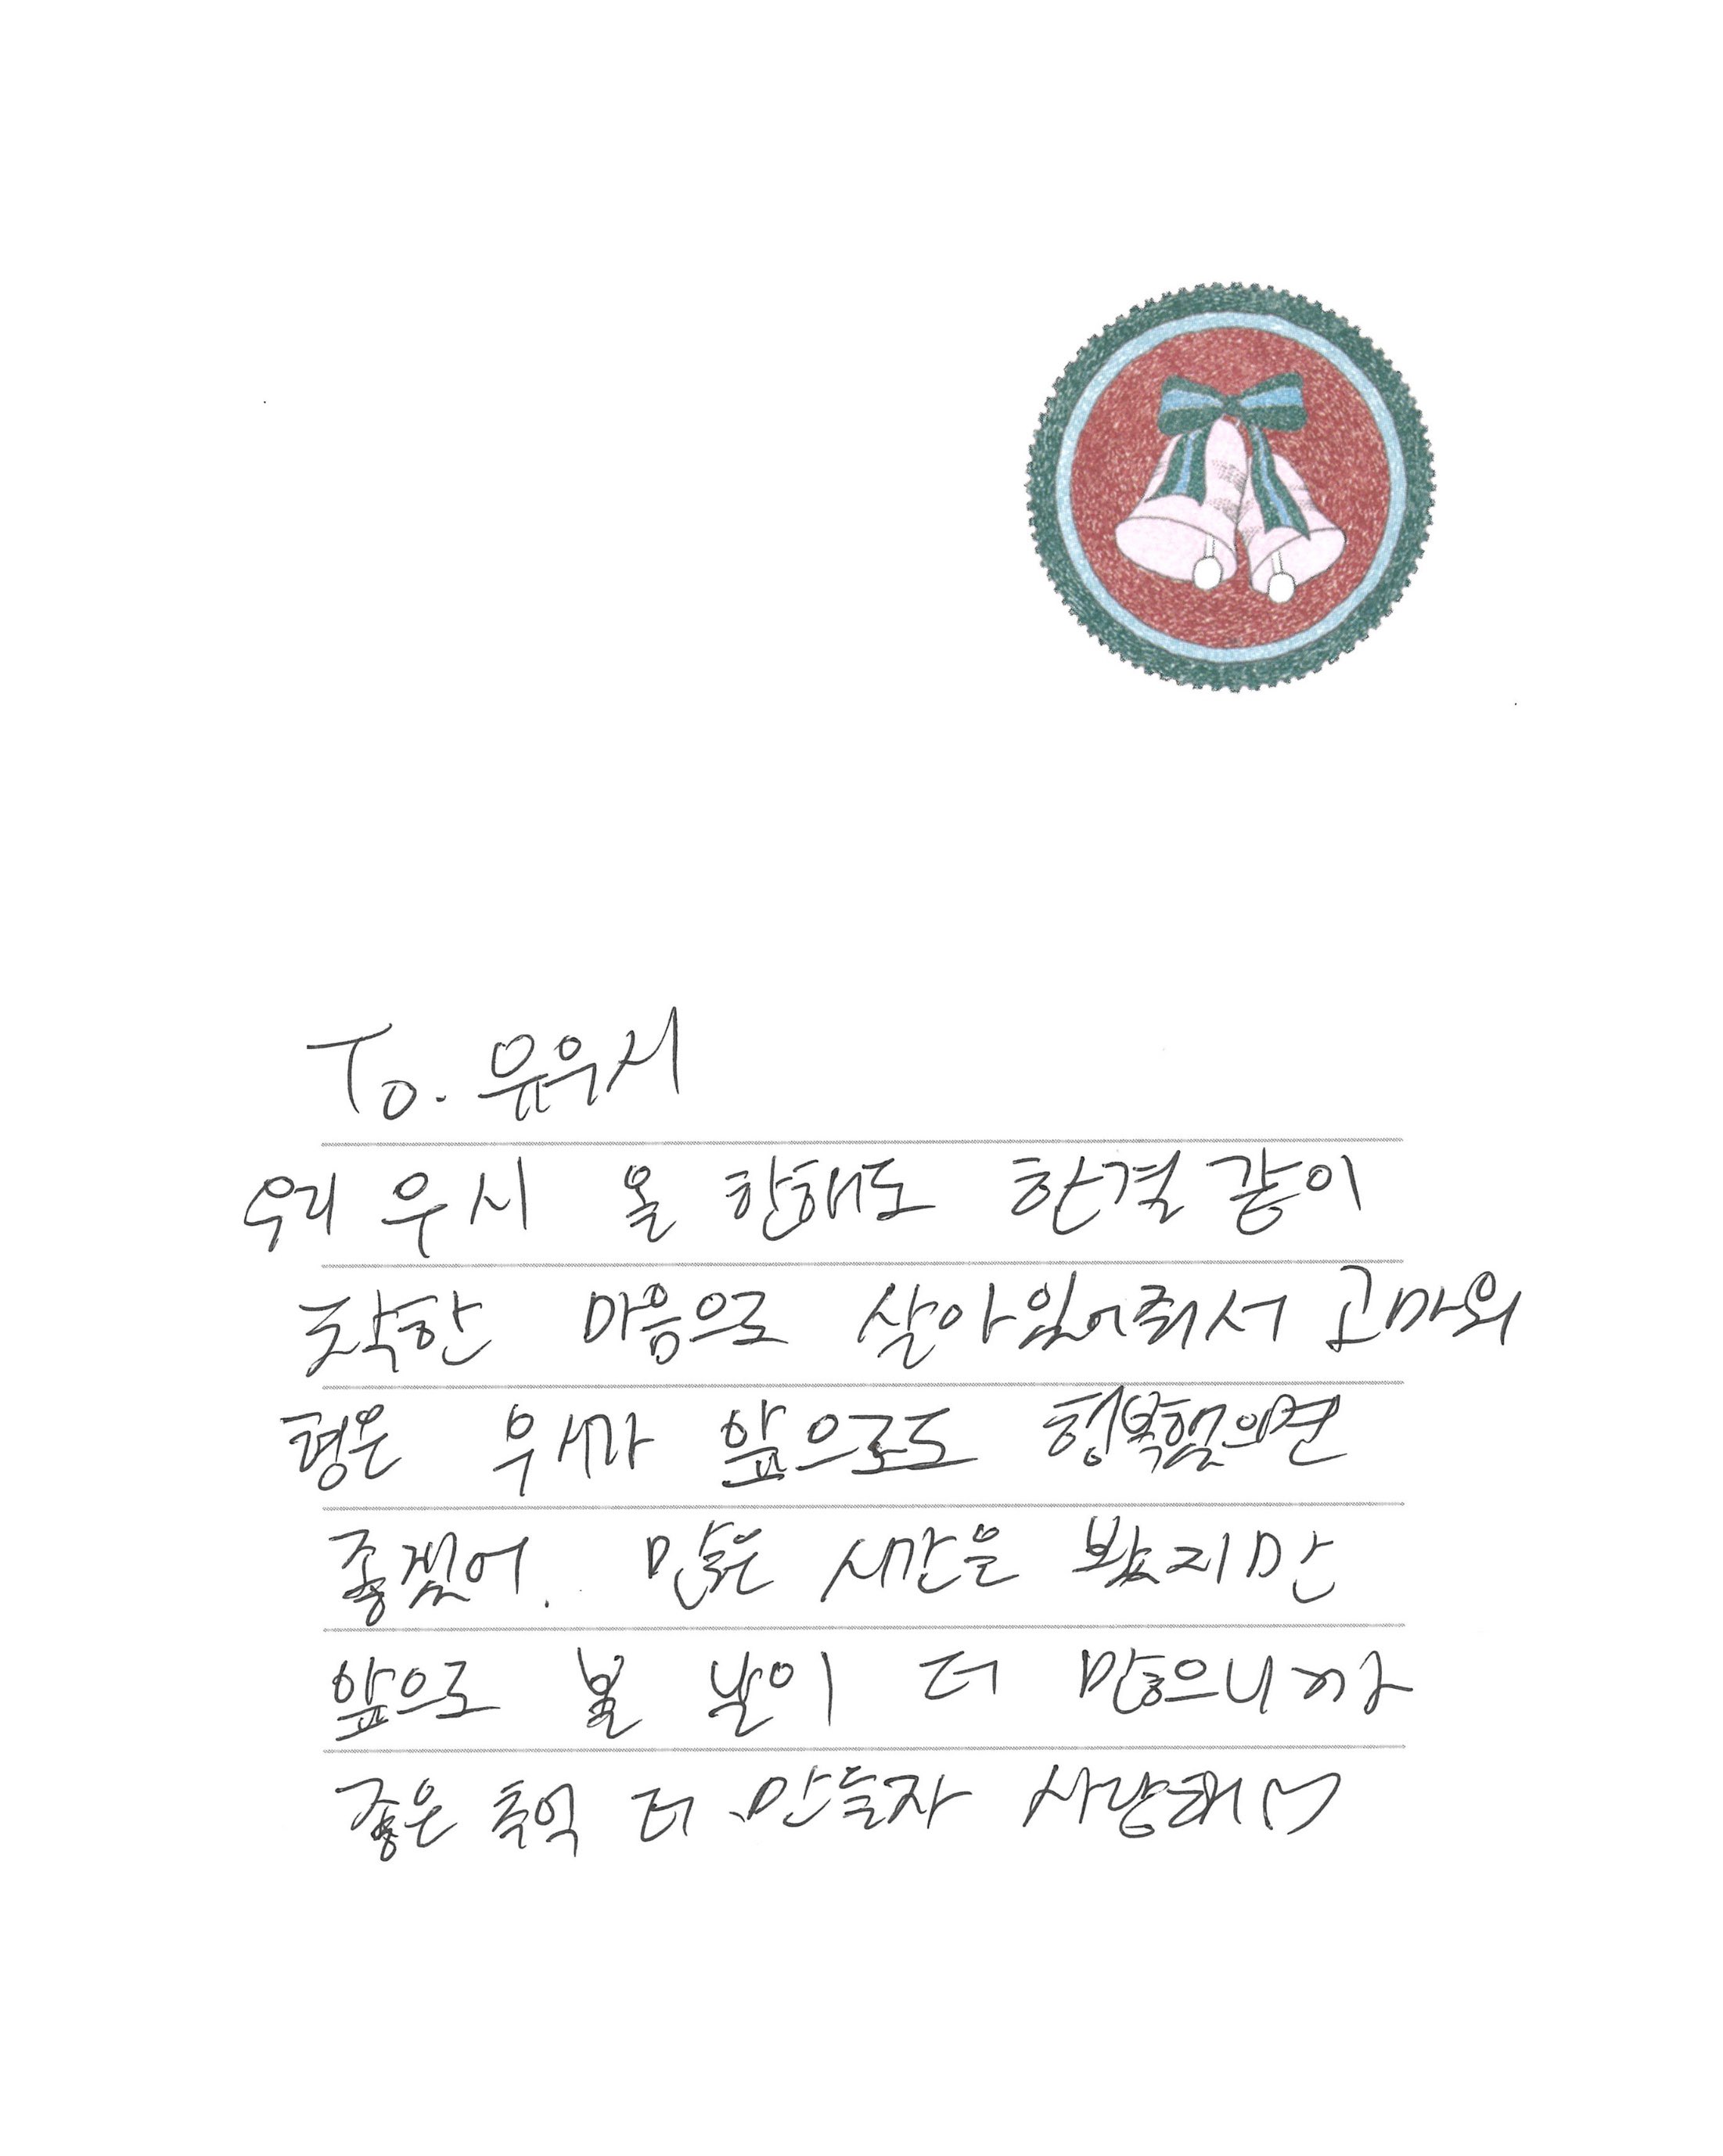 To. 유우시
우리 우시 올 한해도 한결 같이
착한 마음으로 살아있어줘서 고마워
형은 우시가 앞으로도 행복했으면
좋겠어. 많은 시간을 봤지만
앞으로 볼 날이 더 많으니까
좋은 추억 더 만들자 사랑해♡